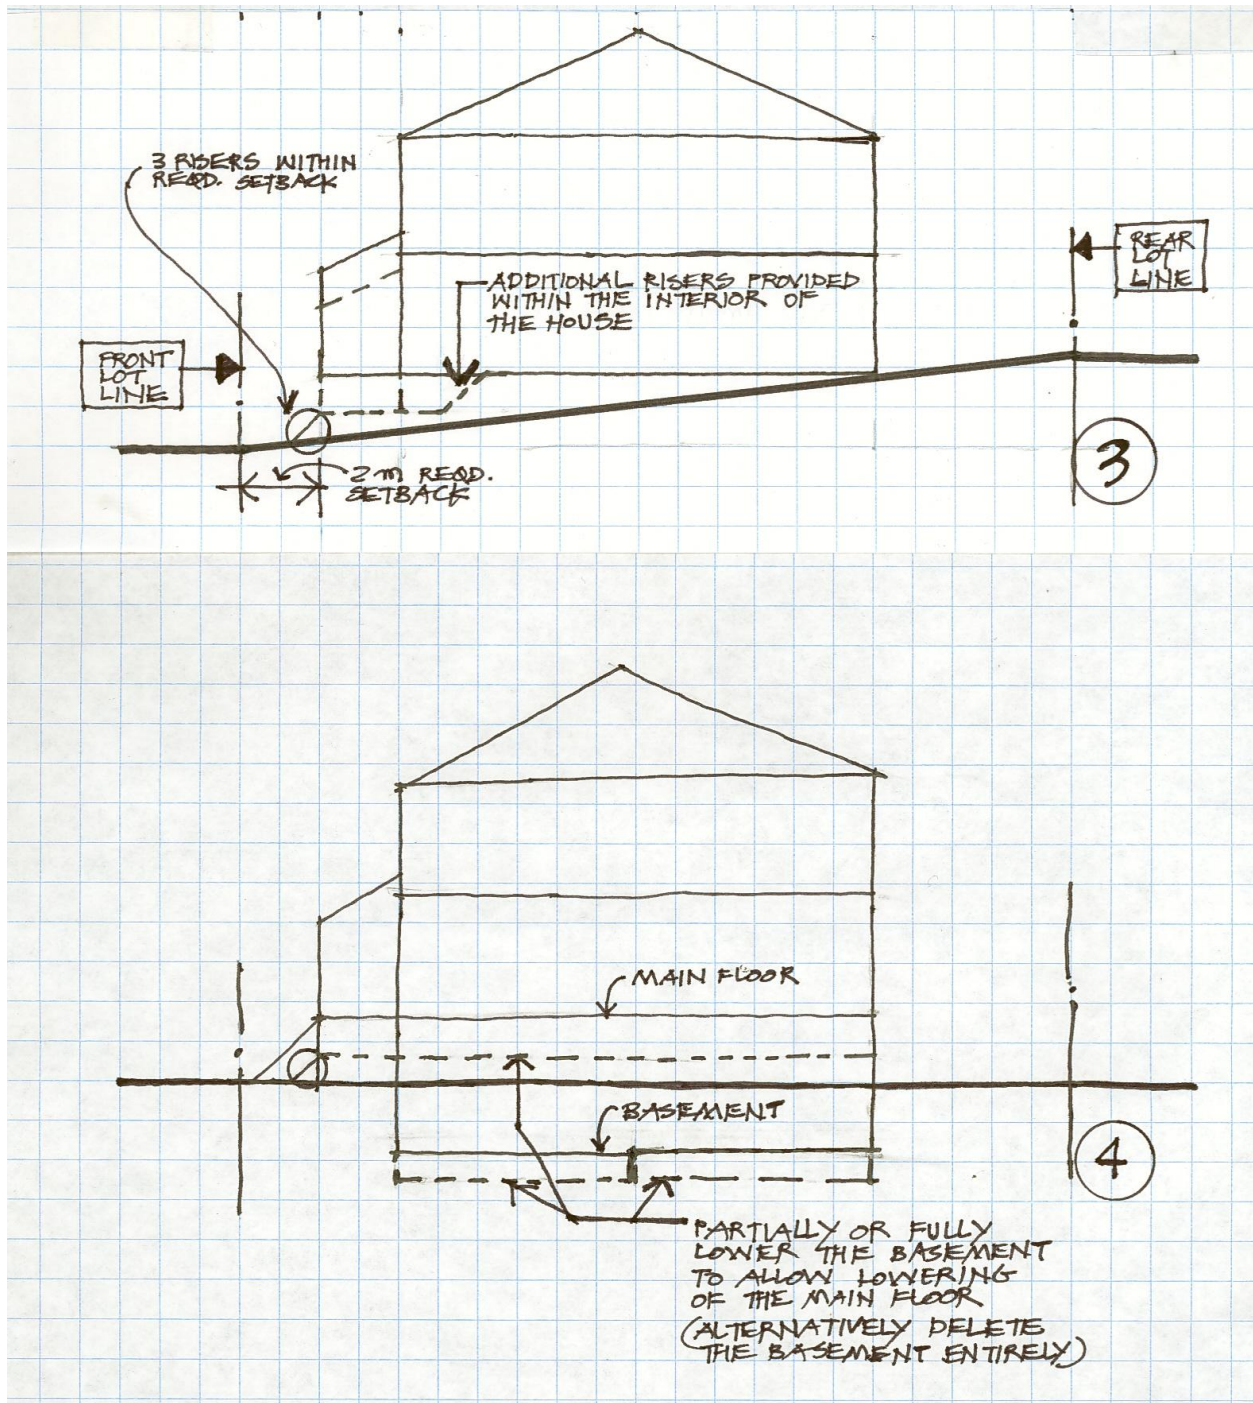 3 RISERS WITHIN
REQD. SETBACK
REAR
LOT
LINE
ADDITIONAL RISERS PROVIDED
WITHIN THE INTERIOR OF
THE HOUSE
FRONT
LOT
LINE
3
2 m REQD.
SETBACK
MAIN FLOOR
BASEMENT
4
PARTIALLY OR FULLY
LOWER THE BASEMENT
TO ALLOW LOWERING
OF THE MAIN FLOOR
(ALTERNATIVELY DELETE
THE BASEMENT ENTIRELY)